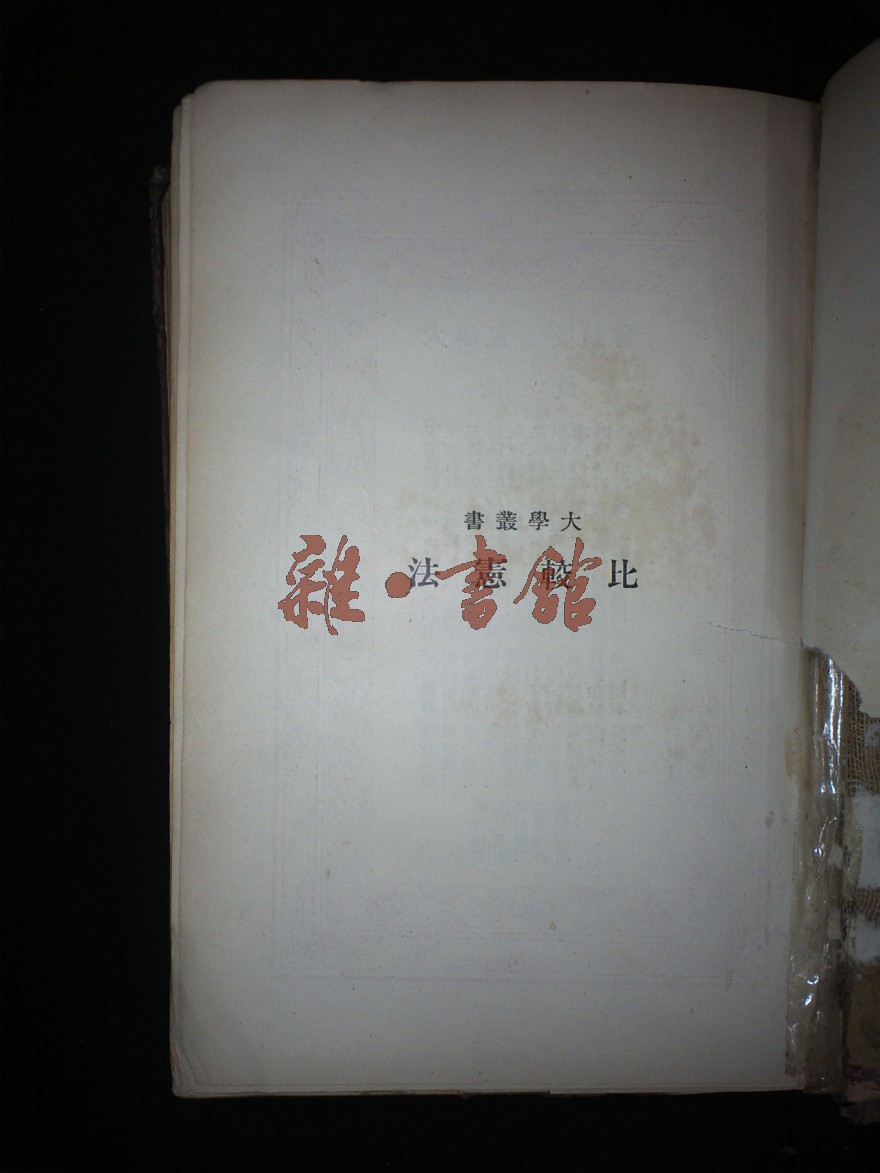 大學叢書
比較憲法
雜·書館